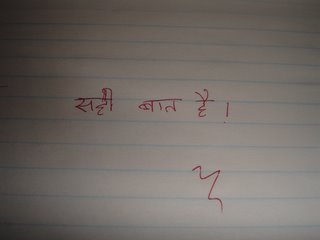 सही बात है।